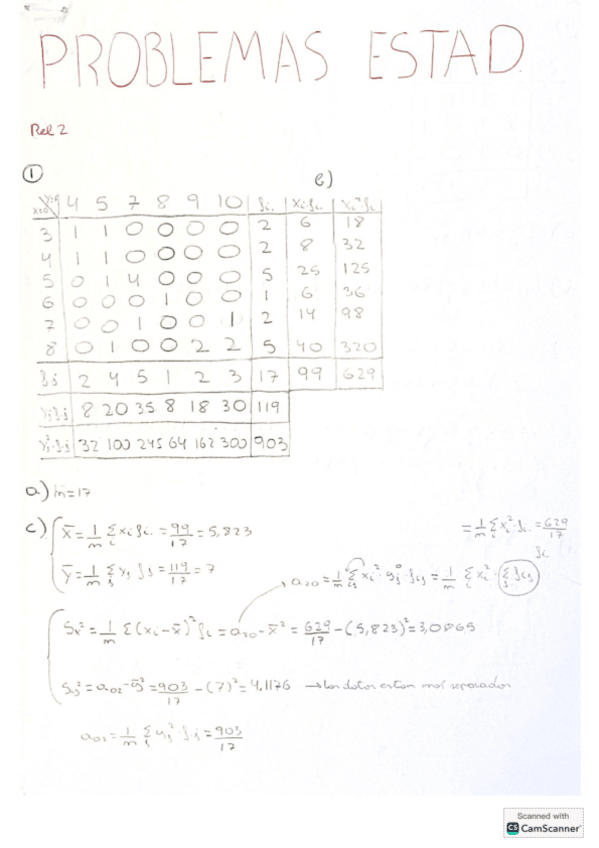 PROBLEMAS ESTAD.
Rel 2
①
e)
4 5 7 8 9 10 fi. xi fi. xi² fi.
3 1 1 0 0 0 0 2 6 18
4 1 1 0 0 0 0 2 8 32
5 0 1 4 0 0 0 5 25 125
6 0 0 0 1 0 0 1 6 36
7 0 0 1 0 0 1 2 14 98
8 0 1 0 0 2 2 5 40 320
f.j 2 4 5 1 2 3 17 99 629
yj f.j 8 20 35 8 18 30 119
yj² f.j 32 100 245 64 162 300 903
a) m=17
c) x̄ = 1/m Σi xi fi. = 99/17 = 5,823
= 1/m Σi xi² fi. = 629/17
fi.
ȳ = 1/m Σj yj f.j = 119/17 = 7
a20 = 1/m Σij xi² yj⁰ fij = 1/m Σi xi² (Σj fij)
Sx² = 1/m Σ(xi - x̄)² fi. = a20 - x̄² = 629/17 - (5,823)² = 3,0865
Sy² = a02 - ȳ² = 903/17 - (7)² = 4,1176 → los datos estan mas separados
a02 = 1/m Σj yj² f.j = 903/17
Scanned with
CS CamScanner